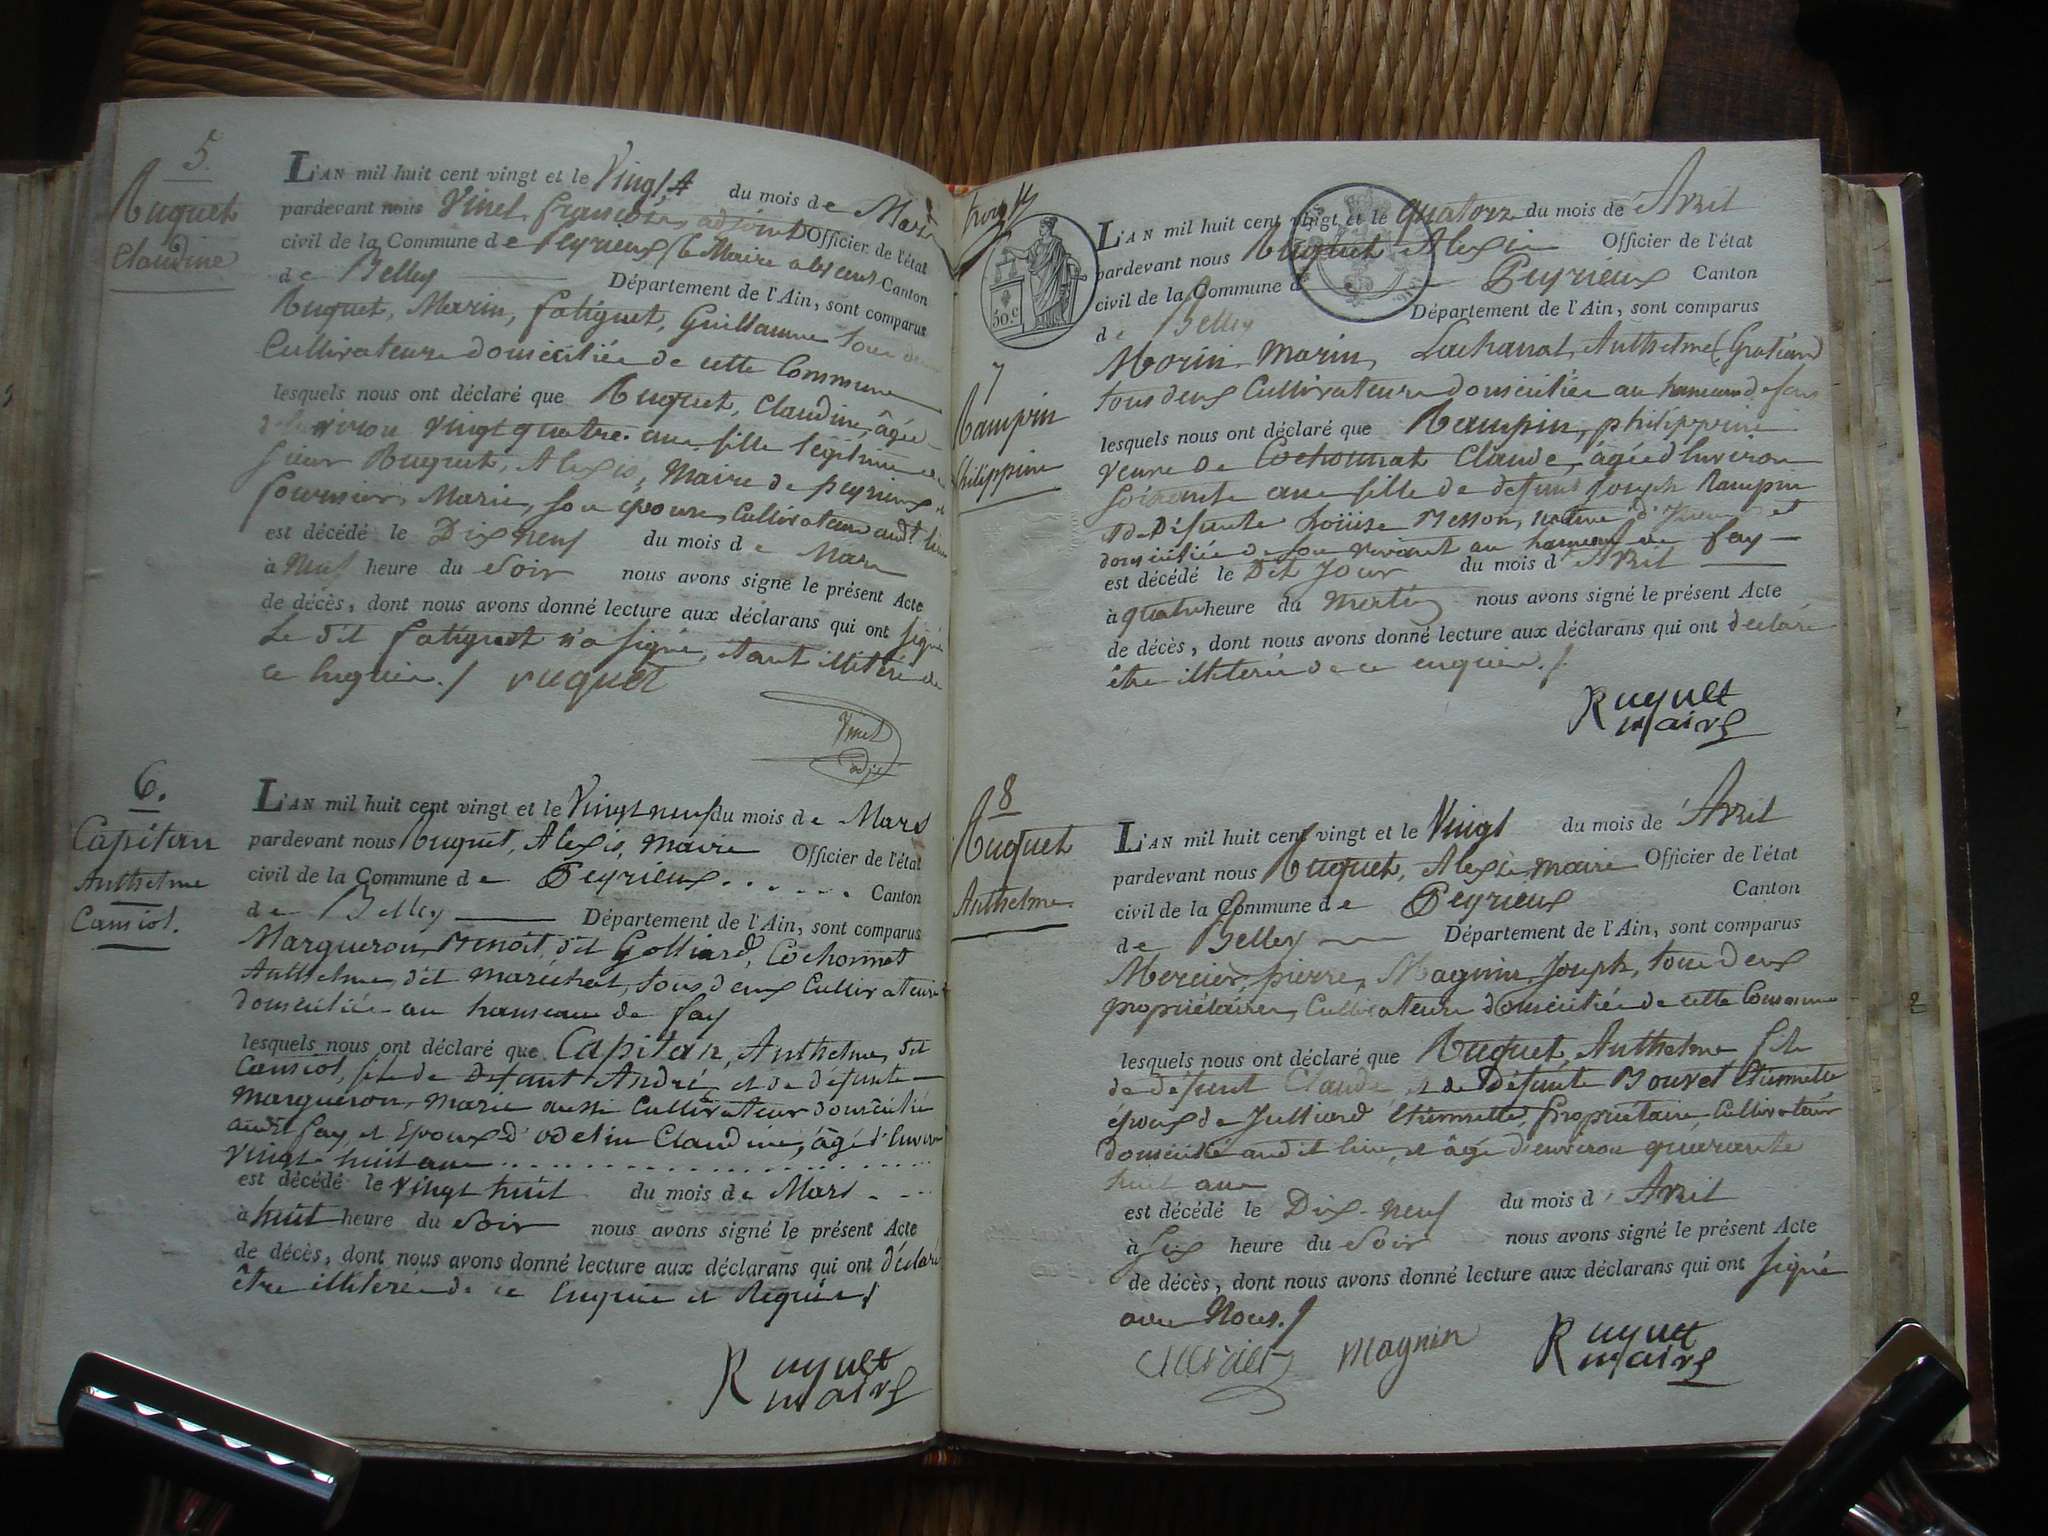 5
Ruquet
Claudine
L'AN mil huit cent vingt et le Vingt du mois de Mars
pardevant nous Vinet françois adjoint Officier de l'état
civil de la Commune de Peyrieux le Maire absent Canton
de Belley Département de l'Ain, sont comparus
Ruquet, Marin, fatiguet, Guillaume tous deux
Cultivateurs domiciliés de cette Commune
lesquels nous ont déclaré que Ruquet, Claudine, âgée
d'Environ vingt quatre ans fille légitime
sieur Ruquet, Alexis, Maire de peyrieux
fournier, Marie, son épouse, Cultivateur audt lieu
est décédé le Dix neuf du mois de Mars
à Neuf heure du Soir nous avons signé le présent Acte
de décès, dont nous avons donné lecture aux déclarans qui ont signé
Le dit fatiguet n'a signé, étant illitéré de
ce Enquis./ ruquet
Vinet
adjt
6.
Capitan
Anthelme
Camiot.
L'AN mil huit cent vingt et le Vingt neuf du mois de Mars
pardevant nous Ruquet, Alexis, Maire Officier de l'état
civil de la Commune de Peyrieux Canton
de Belley Département de l'Ain, sont comparus
Marqueron, Benoit, dit Golliard, Cochonnat
Anthelme, dit maréchal, tous deux Cultivateurs
domiciliés au hameau de fay
lesquels nous ont déclaré que Capitan, Anthelme, dit
Camiot, fils de Defunt André, et de défunte
Marqueron, Marie aussi Cultivateur domicilié
audit fay, et Epoux d'odetin Claudine, âgé d'Environ
vingt huit ans
est décédé le vingt huit du mois de Mars
à huit heure du Soir nous avons signé le présent Acte
de décès, dont nous avons donné lecture aux déclarans qui ont déclaré
être illiterés de ce Enquis et Requis./
Ruquet
maire
50.c
7
Rampin
Philippine
L'AN mil huit cent vingt et le quatorze du mois de Avril
pardevant nous Ruquet Alexis Officier de l'état
civil de la Commune de Peyrieux Canton
de Belley Département de l'Ain, sont comparus
Morin Marin, Lachanal, Anthelme (Gratian)
tous deux Cultivateurs domiciliés au hameau de fay
lesquels nous ont déclaré que Rampin, philippine
veuve de Cochonnat Claude, âgée d'Environ
soixante ans fille de defunt Joseph Rampin
et de Défunte Loüise Besson, native et
domiciliée de son vivant au hameau de fay
est décédé le Dit Jour du mois d'Avril
à quatre heure du Matin nous avons signé le présent Acte
de décès, dont nous avons donné lecture aux déclarans qui ont declaré
être illiterés de ce enquis./.
Ruquet
maire
8
Ruquet
Anthelme
L'AN mil huit cent vingt et le Vingt du mois de Avril
pardevant nous Ruquet, Alexis maire Officier de l'état
civil de la Commune de Peyrieux Canton
de Belley Département de l'Ain, sont comparus
Mercier, pierre, Magnin, Joseph, tous deux
propriétaires, Cultivateurs domiciliés de cette Commune
lesquels nous ont déclaré que Ruquet, Anthelme fils
de defunt Claude et de Défunte Bouvet Etiennette
époux de Julliard Etiennette, Propriétaire, Cultivateur
domicilié audit lieu, et âgé d'environ quarante
huit ans
est décédé le Dix-neuf du mois d'Avril
à Six heure du Soir nous avons signé le présent Acte
de décès, dont nous avons donné lecture aux déclarans qui ont signé
avec Nous./
Mercier magnin Ruquet
maire